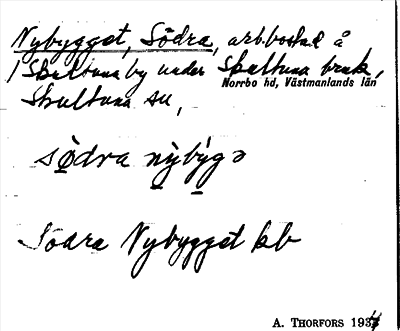 Nybygget, Södra, arb.bostad å
/ Skultuna by under Skultuna bruk,
Norrbo hd, Västmanlands län
Skultuna sn,
södra nybygə
Södra Nybygget kb
A. THORFORS 1934